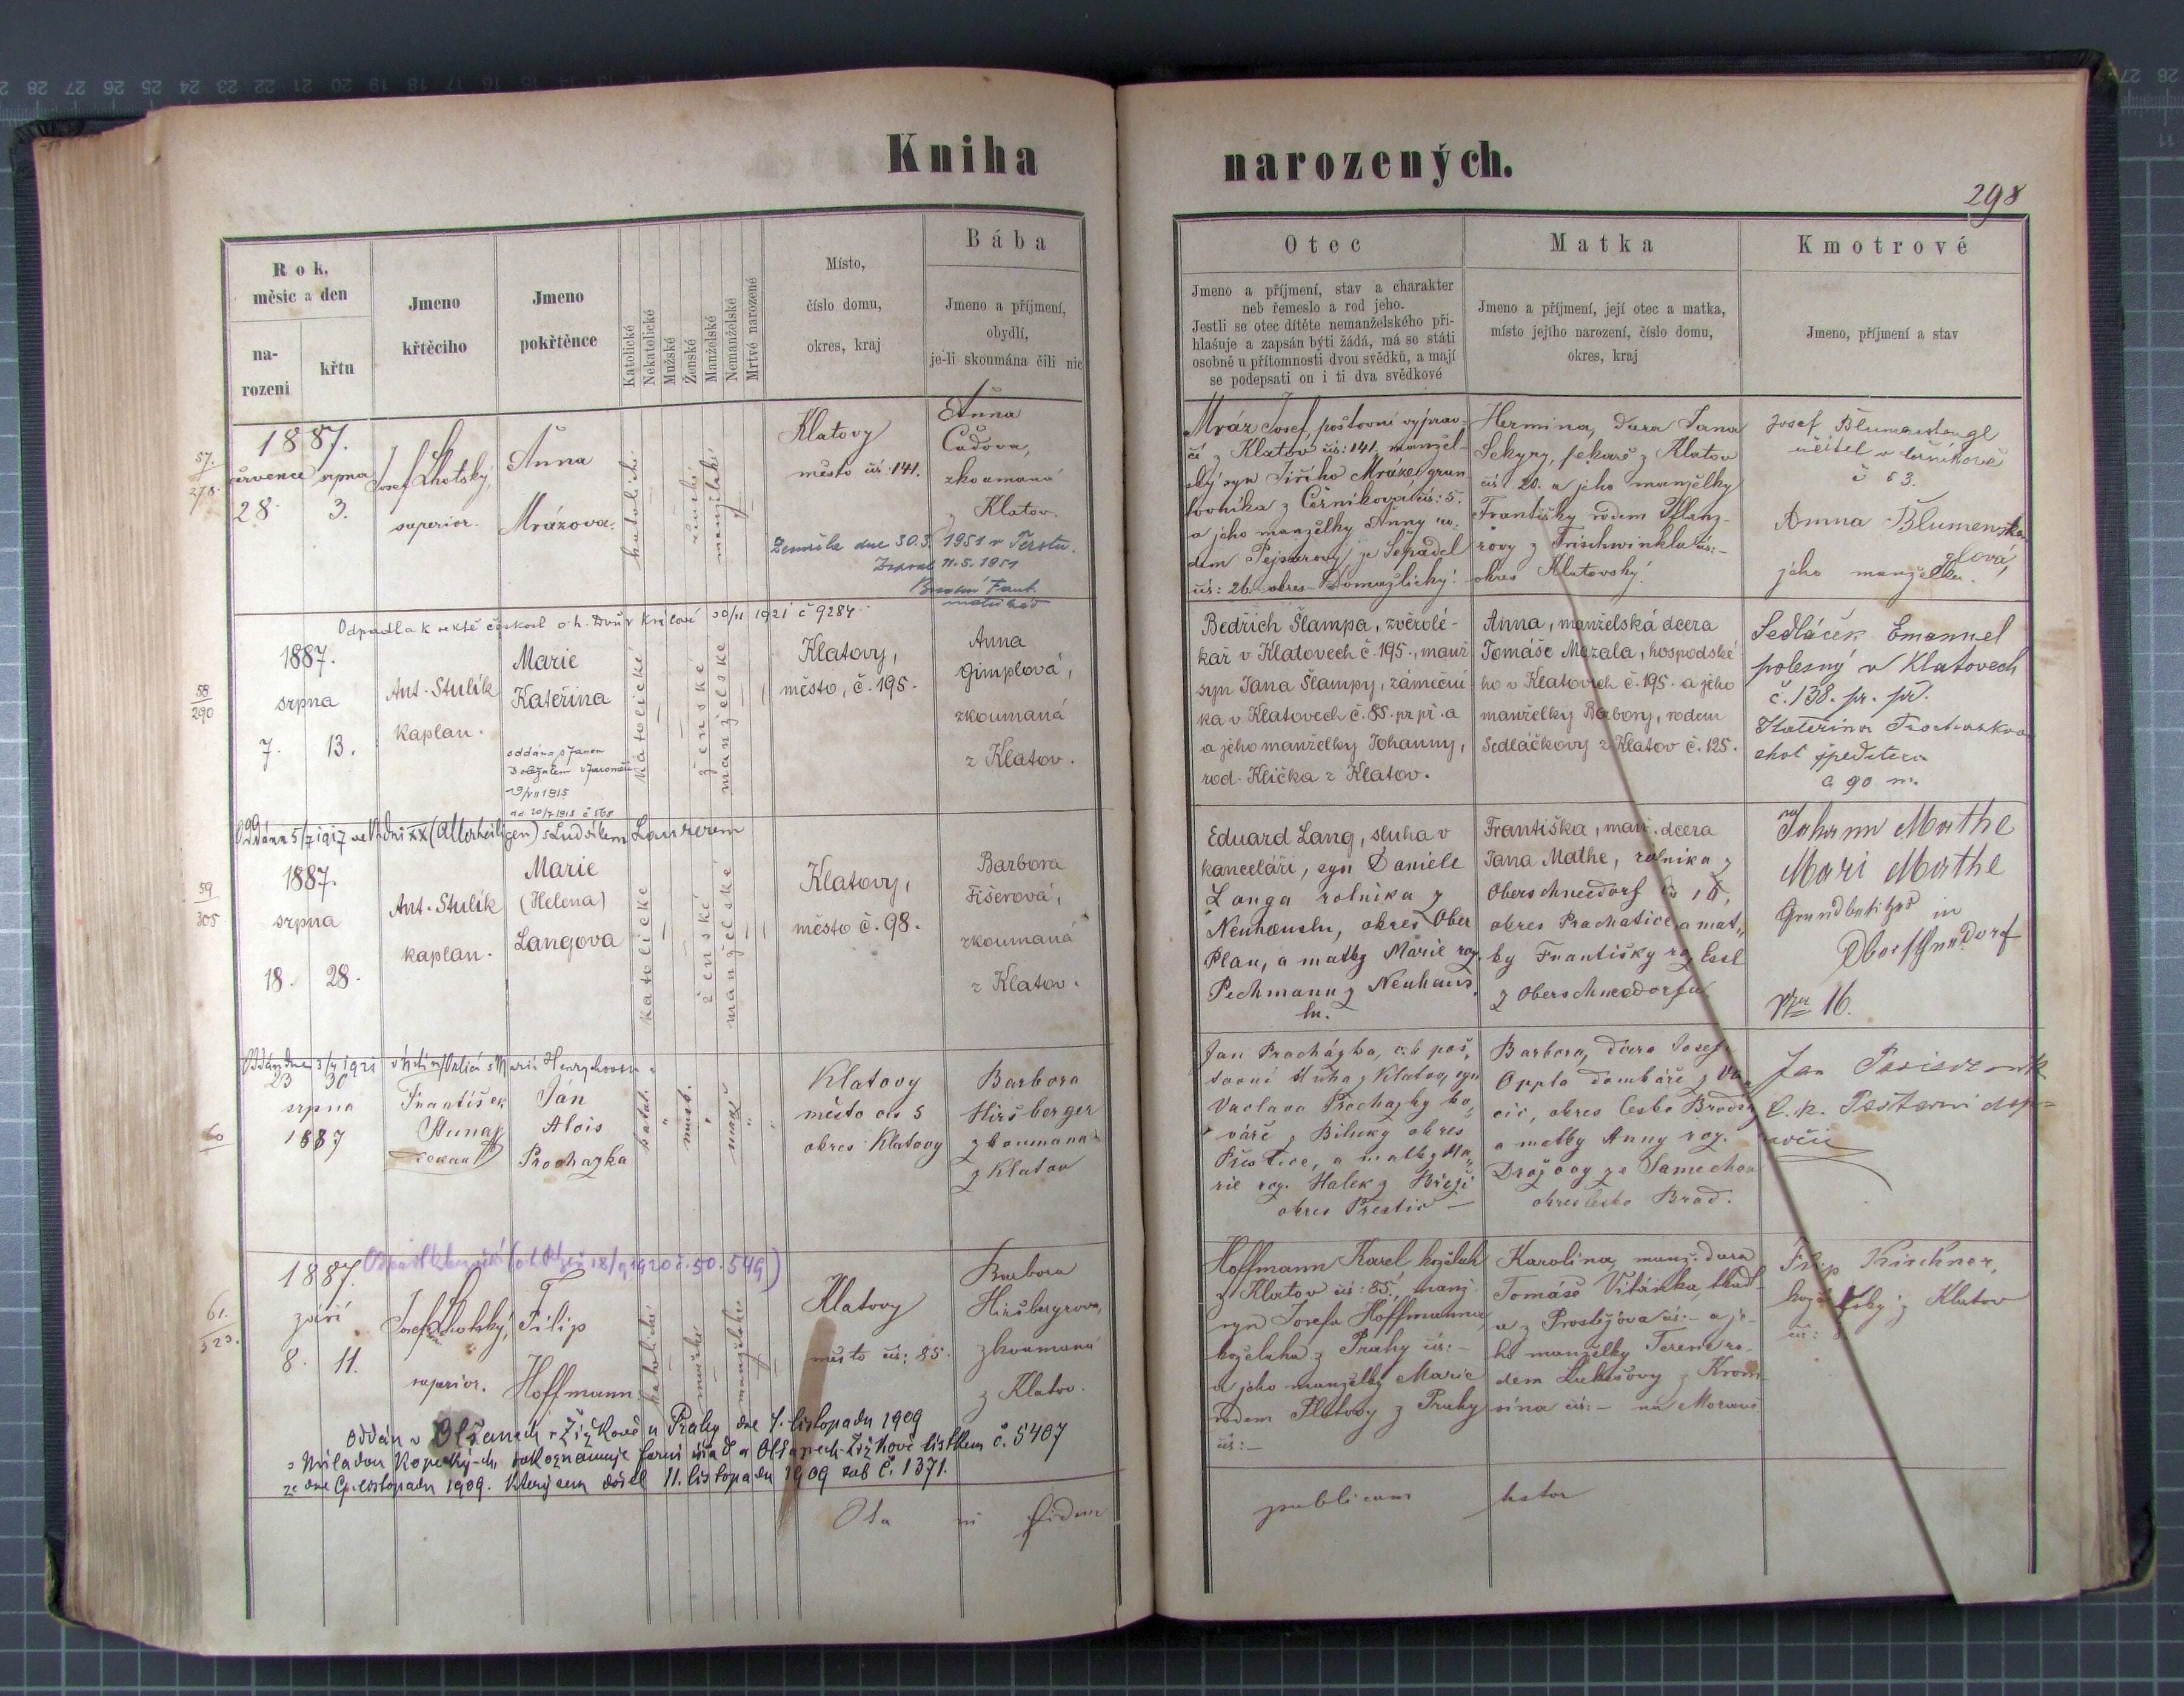 Kniha narozených.
298
Rok, měsíc a den
narození
křtu
Jmeno křtěcího
Jmeno pokřtěnce
Katolické
Nekatolické
Mužské
Ženské
Manželské
Nemanželské
Mrtvé narozené
Místo,
číslo domu,
okres, kraj
Bába
Jmeno a příjmení,
obydlí,
je-li skoumána čili nic
Otec
Jmeno a příjmení, stav a charakter
neb řemeslo a rod jeho.
Jestli se otec dítěte nemanželského při-
hlašuje a zapsán býti žádá, má se státi
osobně u přítomnosti dvou svědků, a mají
se podepsati on i ti dva svědkové
Matka
Jmeno a příjmení, její otec a matka,
místo jejího narození, číslo domu,
okres, kraj
Kmotrové
Jmeno, příjmení a stav
57.
278.
1887.
července srpna
28. 3.
Josef Lhotský,
superior.
Anna
Mrázova.
katolické
ženské
manželské
Klatovy
město čís: 141.
Anna
Čadova,
zkoumaná
z Klatov.
Zemřela dne 30.3. 1951 v Terstu.
11.5.1951
Mráz Josef, poštovní výprav-
čí z Klatov čís: 141, manžel-
ský syn Jiřího Mráze, grun
tovníka z Černíkova čís: 5.
a jeho manželky Anny ro-
dem Pejsarovy ze Sepadel
čís: 26. okres Domažlický.
Hermina, dcera Jana
Sekyry, pekaře z Klatov
čís. 20. a jeho manželky
Františky rodem Pflanz-
rovy z Frischwinkla čís: -
okres Klatovský.
Josef Blumenstengl
učitel v
č 53.
Anna Blumenste
glová,
jeho manželka.
Odpadla k sektě českosl o.h. Dvůr Králové 30/11 1921 č 9284
58
290
1887.
srpna
7. 13.
Ant. Stulík
kaplan.
Marie
Kateřina
oddána s Janem
Doležalem v Jaroměři
katolické
ženské
manželské
Klatovy,
město, č. 195.
Anna
Gimplová,
zkoumaná
z Klatov.
Bedřich Šlampa, zvěrolé-
kař v Klatovech č. 195., manž
syn Jana Šlampy, zámeční
ka v Klatovech č. 85. pr př. a
a jeho manželky Johanny,
rod. Klička z Klatov.
Anna, manželská dcera
Tomáše Mazala, hospodské
ho v Klatovech č. 195. a jeho
manželky Barbory, rodem
Sedláčkovy z Klatov č. 125.
Sedláček Emanuel
polesný v Klatovech
č. 138. pr. př.
Kateřina
choť špeditera
č 90 m.
Oddána 5/7 1917 ve Vídni XX (Allerheiligen) s Ludvíkem
59
305
1887.
srpna
18. 28.
Ant. Stulík
kaplan.
Marie
(Helena)
Langova
katolické
ženské
manželské
Klatovy,
město č. 98.
Barbora
Fišerová,
zkoumaná
z Klatov.
Eduard Lang, sluha v
kanceláři, syn Daniele
Langa rolníka z
Neuhäuslu, okres Ober
Plan, a matky Marie roz.
Pechmann z Neuhäus
lu.
Františka, manž. dcera
Jana Mathe, rolníka z
Oberschneedorf čís 16,
okres Prachatice, a mat-
ky Františky roz Essl
z Oberschneedorfu.
Johann Mathe
Mari Mathe
Grundbesitzer in
Nro 16.
60
Oddán dne 3/4 1921
23 30
srpna
1887
František
děkan
Jan
Alois
Prochazka
katol.
mužs.
manž
Klatovy
město čís 5
okres Klatovy
Barbora
Hiršberger
zkoumana
z Klatov
Jan Procházka, c.k. poš-
tovní sluha z Klatov, syn
Vaclava Prochazky ko-
váře z Biluky okres
Přestice, a matky Ma-
rie roz. Halek z
okres Prestic —
Barbora, dcera Josefa
Oppla
okres Česko Brodsky
a matky Anny roz.
ze Samechov
okres Česko Brod.
Jan
c. k. Poštovní
61.
323.
1887.
září
8. 11.
Josef Lhotský,
superior.
Filip
Hoffmann
katolické
mužské
manželské
Klatovy
město čís: 85.
Barbora
Hiršbergrova,
zkoumaná
z Klatov.
Hoffmann Karel, koželuh
z Klatov čís: 85., manž.
syn Josefa Hoffmanna,
koželuha z Prahy čís: -
a jeho manželky Marie
rodem z Prahy
čís: -
Karolina, manž. dcera
Tomáše Vitáska, tkad-
ce z Prostějova čís: - a je-
ho manželky Terezie ro-
dem Lukešovy z
čís: - na Moravě
Filip Kirschner,
z Klatov
čís:
Oddán v Olšanech-Žižkově u Prahy dne 7. listopadu 1909
s Miladou Kopeckých, jak oznamuje farní úřad v Olšanech-Žižkově lístkem č. 5407
ze dne 9. listopadu 1909. Který sem došel 11. listopadu 1909 sub č. 1371.
Ita in fidem publicam